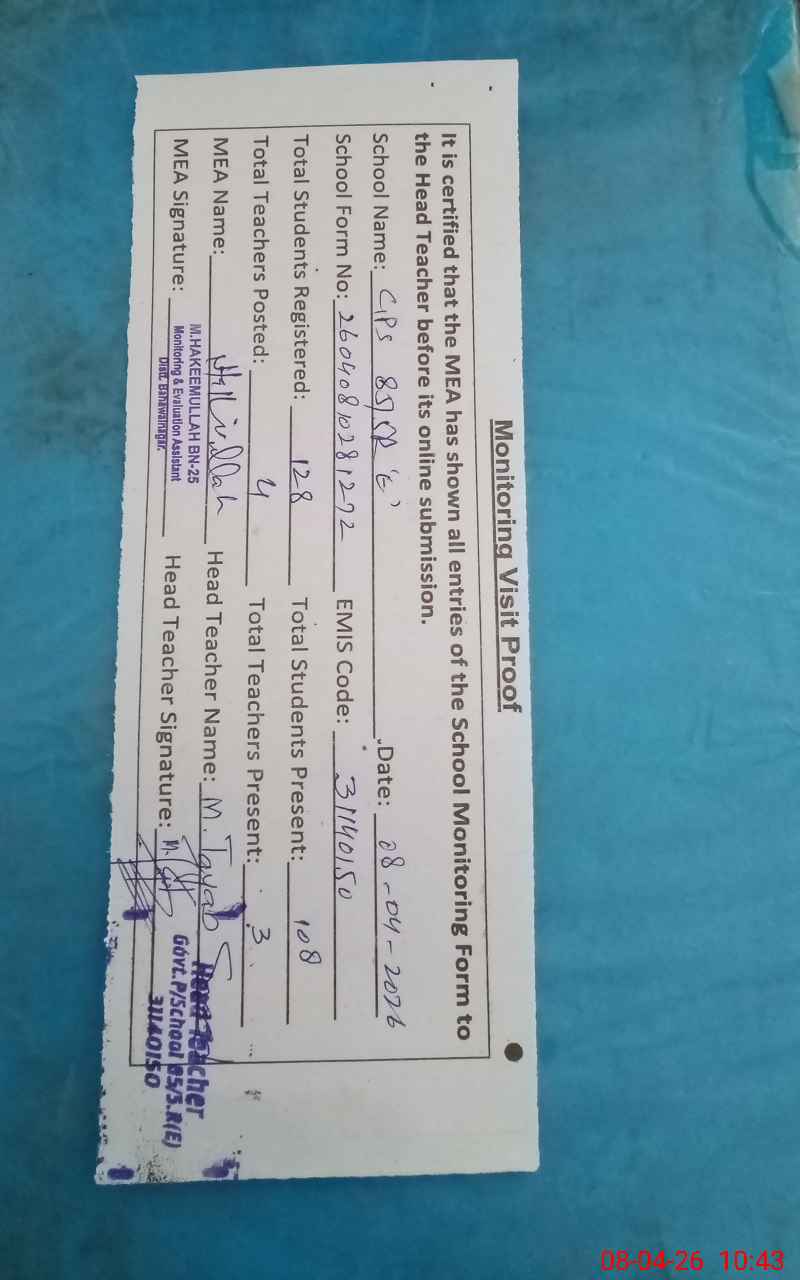 Monitoring Visit Proof
It is certified that the MEA has shown all entries of the School Monitoring Form to
the Head Teacher before its online submission.
School Name: GPS 85/5R 'E' Date: 08-04-2026
School Form No: 26040810281272 EMIS Code: 31140150
Total Students Registered: 128 Total Students Present: 108
Total Teachers Posted: 4 Total Teachers Present: 3
MEA Name: Head Teacher Name: M. Tayab
MEA Signature: Head Teacher Signature:
M.HAKEEMULLAH BN-25
Monitoring & Evaluation Assistant
Distt. Bahawalnagar.
Head Teacher
Govt.P/School 85/5.R(E)
31140150
08-04-26 10:43